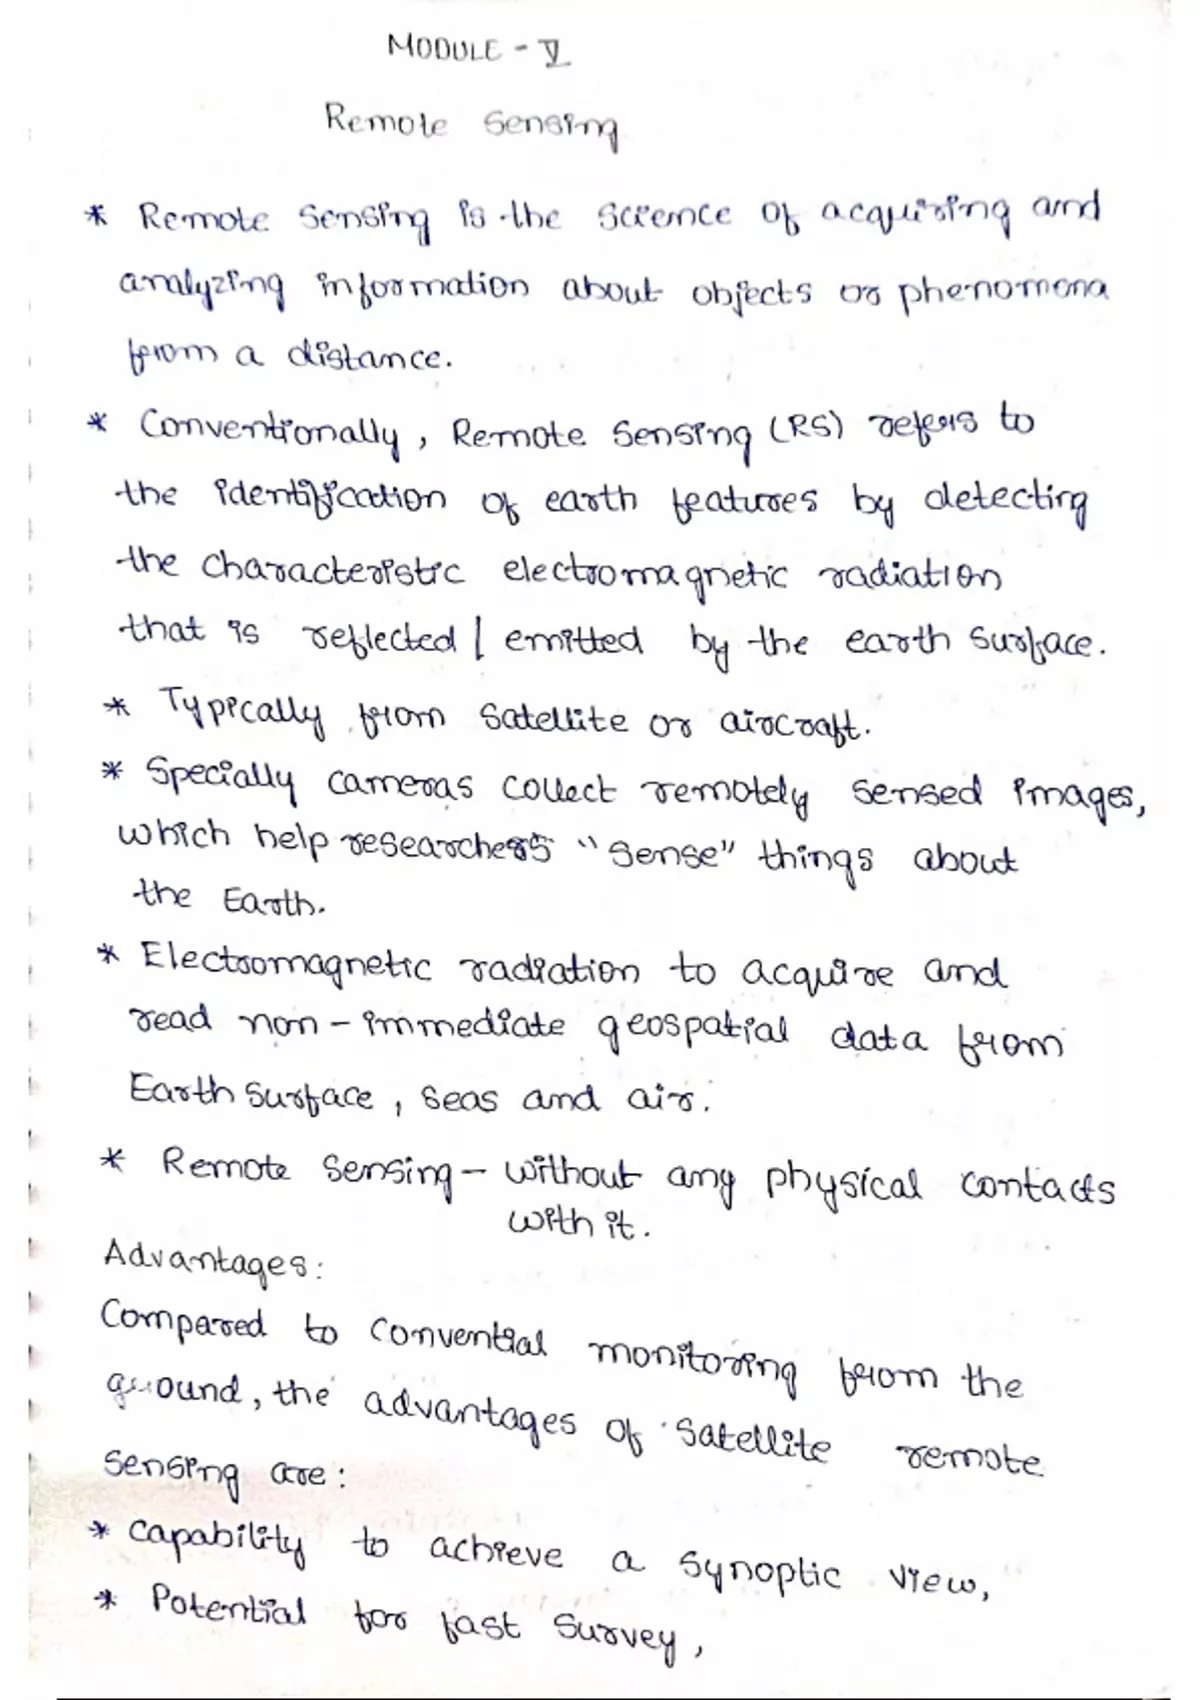 MODULE - V
Remote Sensing
* Remote Sensing is the Science of acquiring and
analyzing information about objects or phenomona
from a distance.
* Conventionally, Remote Sensing (RS) refers to
the identification of earth features by detecting
the characteristic electromagnetic radiation
that is reflected / emitted by the earth surface.
* Typically from satellite or aircraft.
* Specially cameras collect remotely sensed images,
which help researchers "sense" things about
the Earth.
* Electromagnetic radiation to acquire and
read non - immediate geospatial data from
Earth surface, seas and air.
* Remote Sensing - without any physical contacts
with it.
Advantages:
Compared to convential monitoring from the
ground, the advantages of satellite remote
sensing are:
* capability to achieve a synoptic view,
* Potential for fast survey,